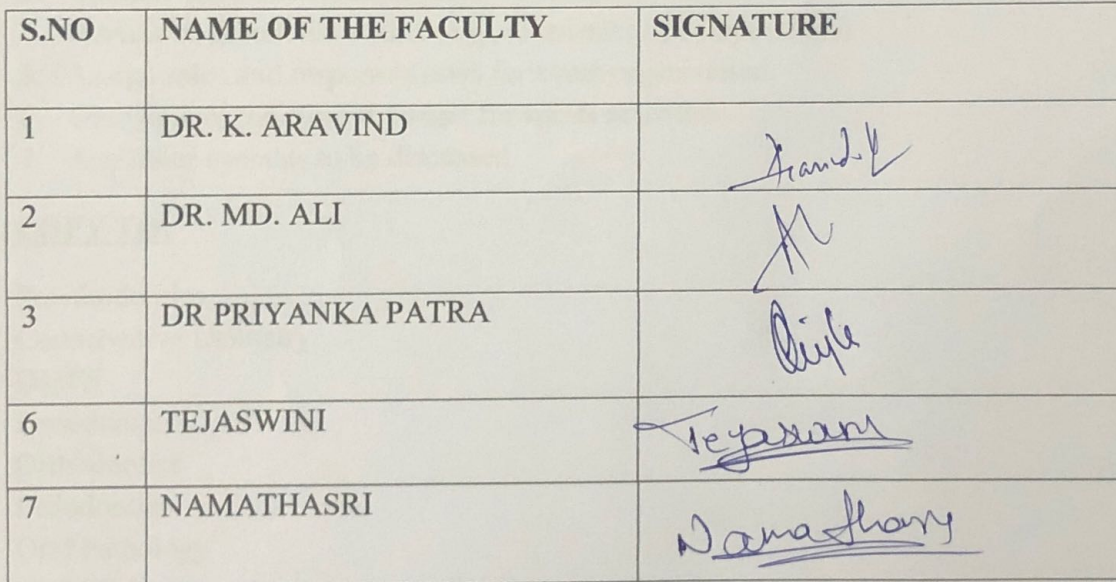 S.NO NAME OF THE FACULTY SIGNATURE
1 DR. K. ARAVIND Aravind.K
2 DR. MD. ALI
3 DR PRIYANKA PATRA
6 TEJASWINI Tejaswini
7 NAMATHASRI Namathasri